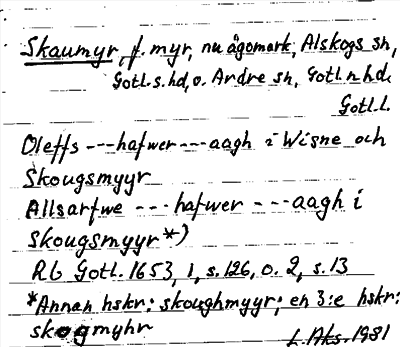 Skaumyr, f. myr, nu ägomark, Alskogs sn,
Gotl. s. hd, o. Ardre sn, Gotl. n. hd.
Gotl. l.
Oleffs --- hafwer --- aagh i Wisne och
Skougsmyyr
Allsarfwe --- hafwer --- aagh i
Skougsmyyr *)
Rb Gotl. 1653, 1, s. 126, o. 2, s. 13
*Annan hskr: skoughmyyr; en 3:e hskr:
skogmyhr
L. Aks. 1981